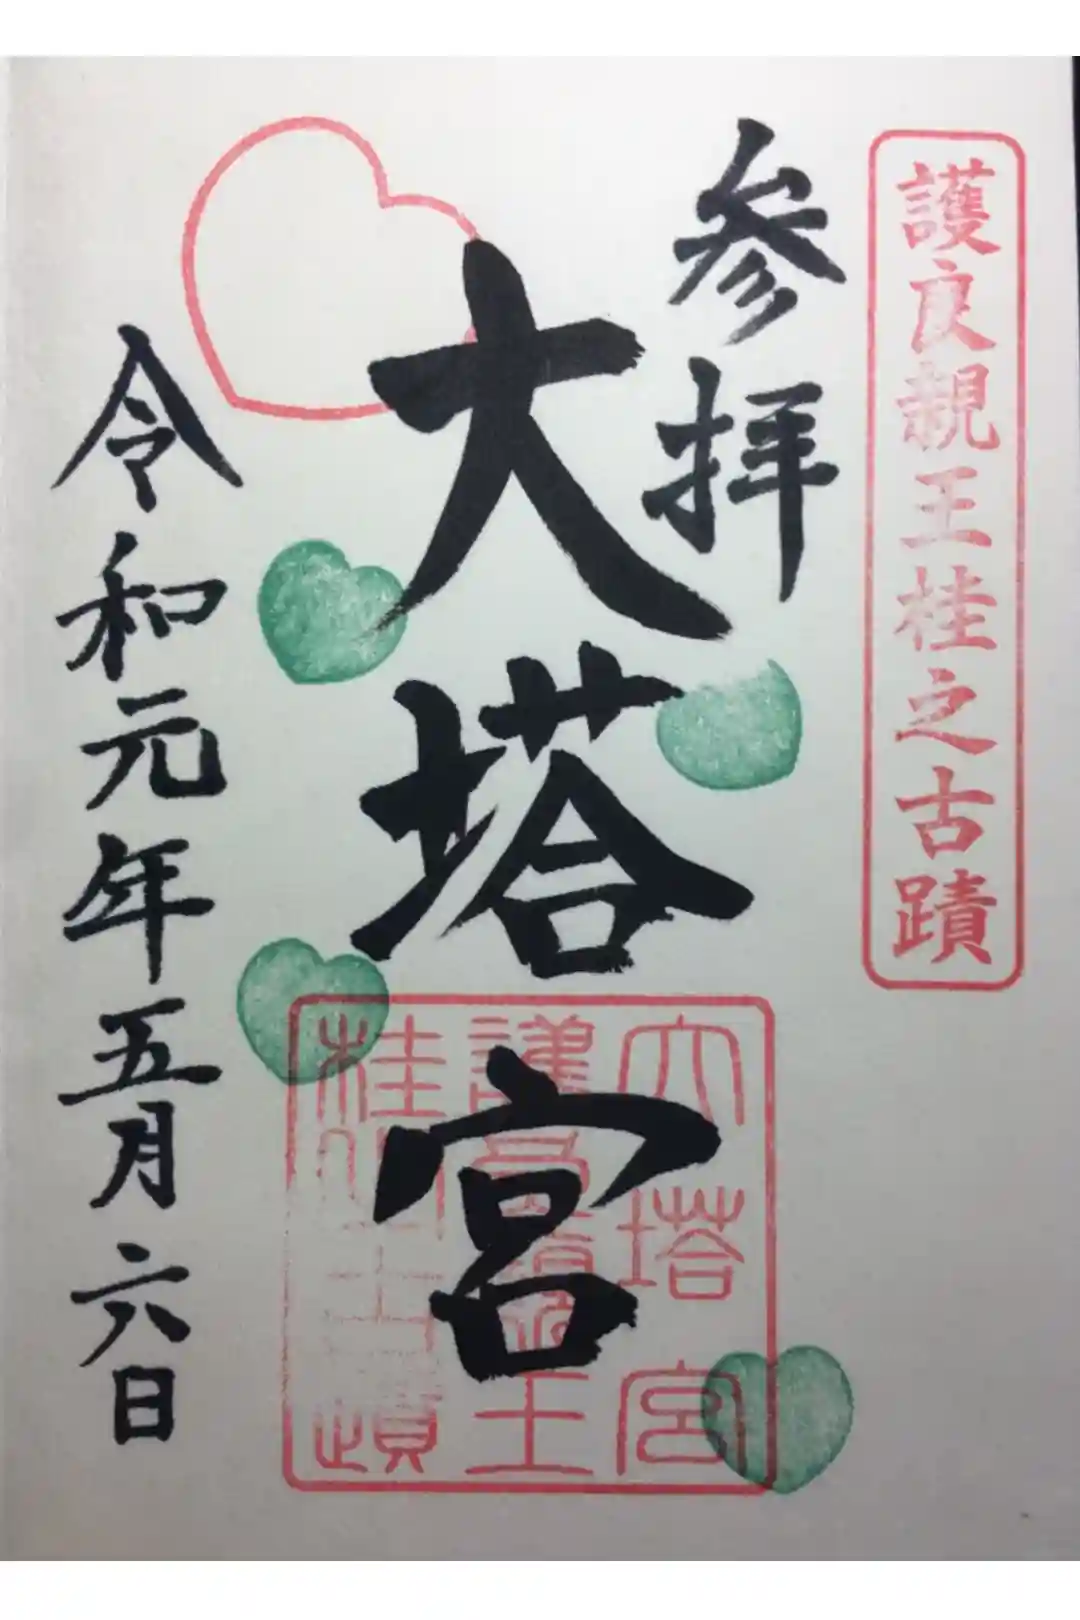 護良親王桂之古蹟
参拝
大塔宮
令和元年五月六日
大塔宮
護良親王
桂古蹟